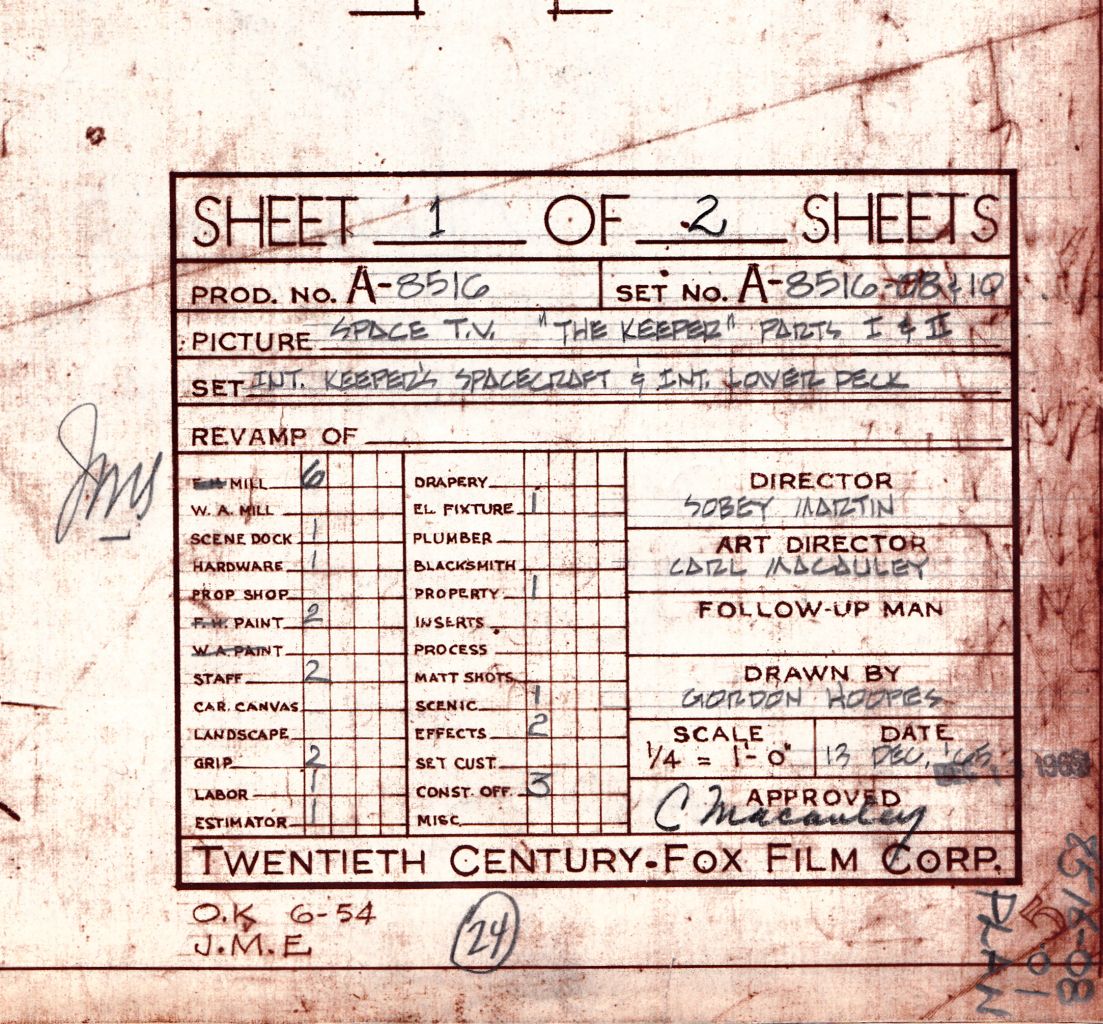 SHEET 1 OF 2 SHEETS
PROD. NO. A-8516 SET NO. A-8516-08 & 10
PICTURE SPACE T.V. "THE KEEPER" PARTS I & II
SET INT. KEEPER'S SPACECRAFT & INT. LOWER DECK
REVAMP OF
MILL 6
W. A. MILL
SCENE DOCK 1
HARDWARE 1
PROP SHOP
F. H. PAINT 2
W. A. PAINT
STAFF 2
CAR. CANVAS
LANDSCAPE
GRIP 2
LABOR 1
ESTIMATOR 1
DRAPERY
EL. FIXTURE 1
PLUMBER
BLACKSMITH
PROPERTY 1
INSERTS
PROCESS
MATT SHOTS
SCENIC 1
EFFECTS 2
SET CUST.
CONST. OFF. 3
MISC.
DIRECTOR
SOBEY MARTIN
ART DIRECTOR
CARL MACAULEY
FOLLOW-UP MAN
DRAWN BY
GORDON HOOPES
SCALE
1/4 = 1'-0"
DATE
13 DEC, '65
APPROVED
C Macauley
TWENTIETH CENTURY-FOX FILM CORP.
O.K 6-54
J.M.E
24
8516-08
5 01
PLAN